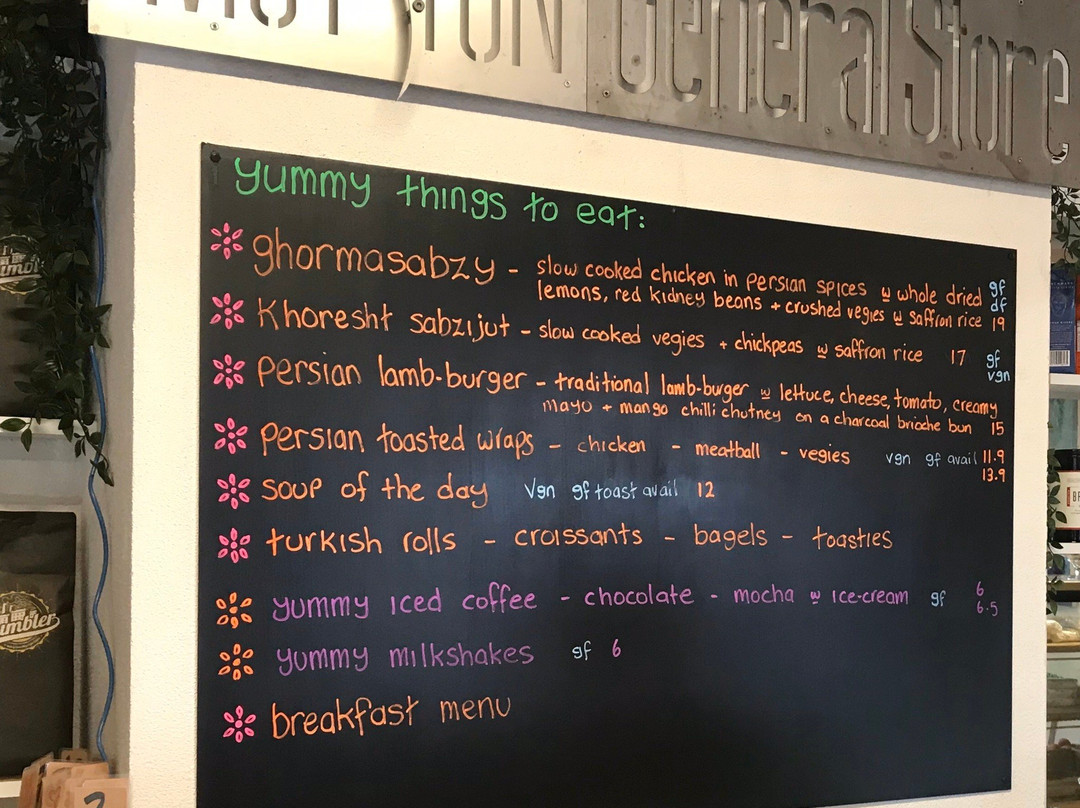 General Store
yummy things to eat:
ghormasabzy - slow cooked chicken in Persian spices w whole dried gf
lemons, red kidney beans + crushed vegies w saffron rice df 19
Khoresht sabzijut - slow cooked vegies + chickpeas w saffron rice 17 gf
vgn
Persian lamb-burger - traditional lamb-burger w lettuce, cheese, tomato, creamy
mayo + mango chilli chutney on a charcoal brioche bun 15
Persian toasted wraps - chicken - meatball - vegies vgn gf avail 11.9
13.9
soup of the day vgn gf toast avail 12
turkish rolls - croissants - bagels - toasties
yummy iced coffee - chocolate - mocha w ice-cream gf 6
6.5
yummy milkshakes gf 6
breakfast menu